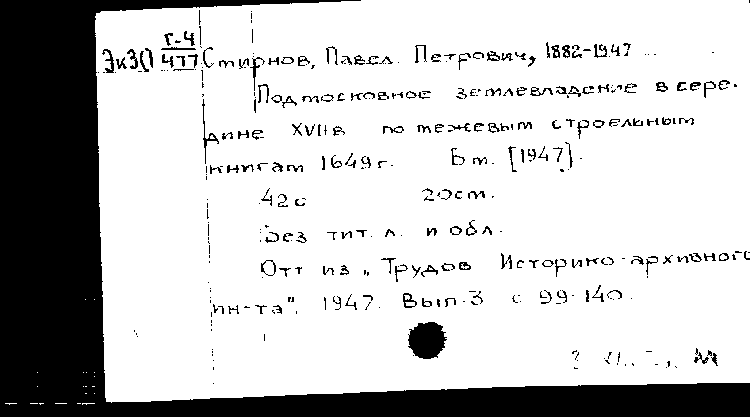 Г-4
ЭкЗ() 477 Смирнов, Павел Петрович, 1882-1947
Подмосковное землевладение в сере-
дине XVII в по межевым строельным
книгам 1649 г. Б м. [1947].
42 с 20 см.
Без тит. л. и обл.
Отт из „Трудов Историко-архивного
ин-та". 1947. Вып. 3 с 99-140.